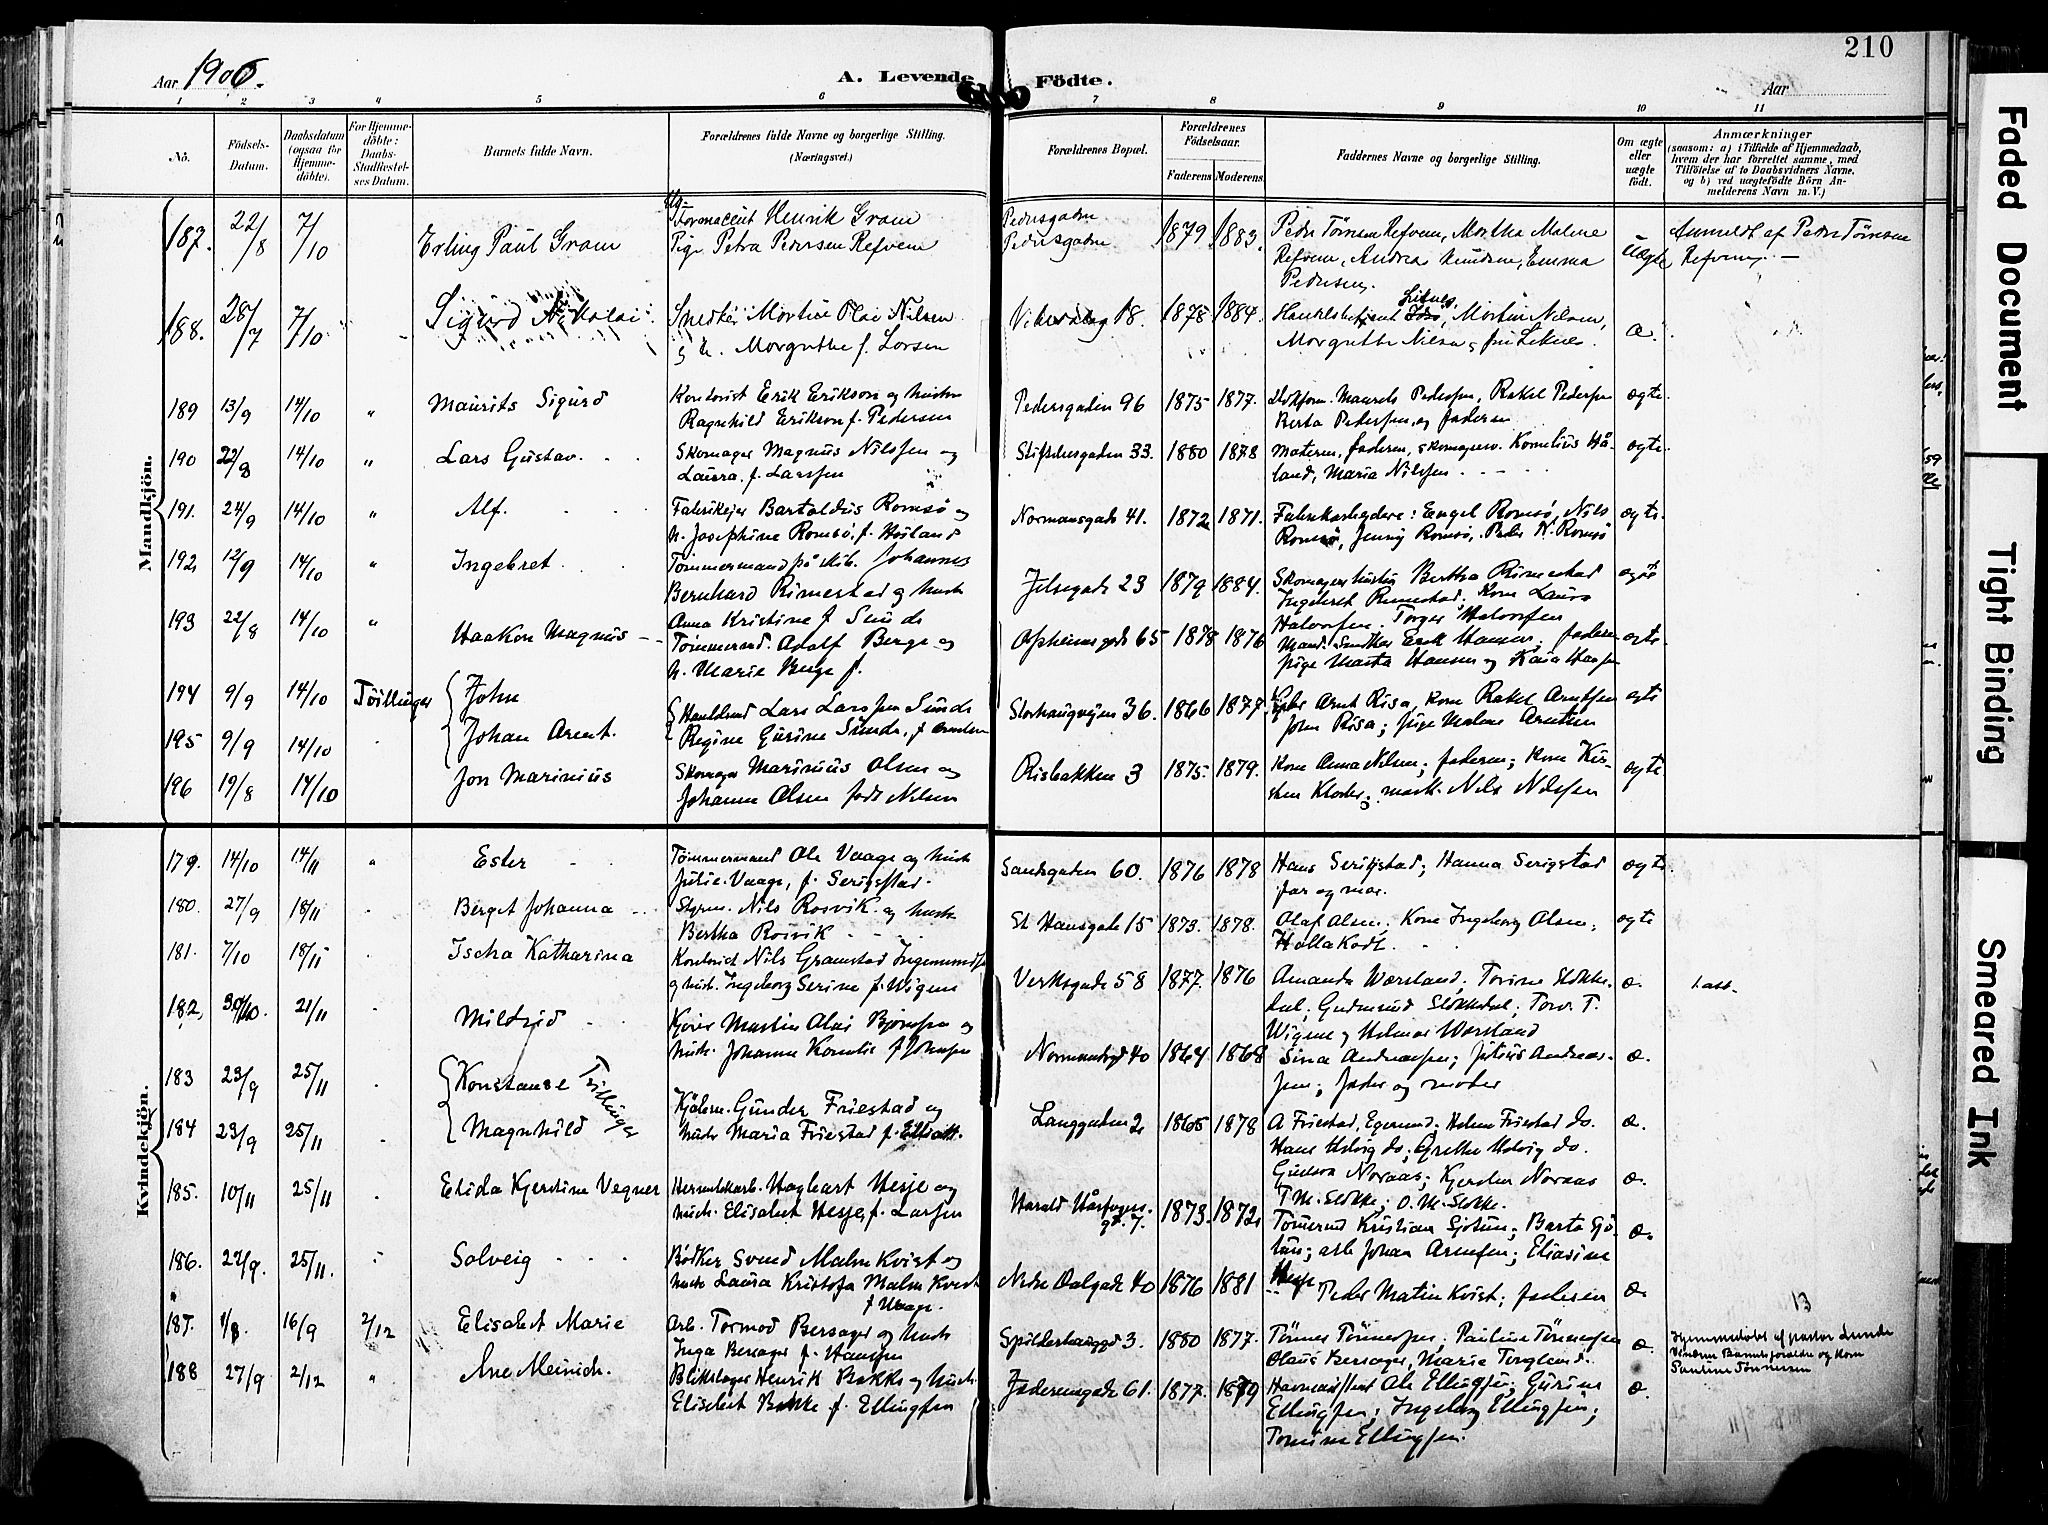 210
Aar 1906.
A. Levende Födte.
Aar
1 2 3 4 5 6 7 8 9 10 11
No.
Födsels-Datum.
Daabsdatum (ogsaa for Hjemme-döbte).
For Hjemme-döbte: Daabs-Stadfæstelses Datum.
Barnets fulde Navn.
Forældrenes fulde Navne og borgerlige Stilling. (Næringsvei.)
Forældrenes Bopæl.
Forældrenes Födselsaar.
Faderens Moderens.
Faddernes Navne og borgerlige Stilling.
Om ægte eller uægte födt.
Anmærkninger
(saasom: a) i Tilfælde af Hjemmedaab, hvem der har forrettet samme, med Tilföielse af to Daabsvidners Navne, og b) ved uægtefödte Börn Anmelderens Navn m. V.)
Mandkjön.
187. 22/8 7/10 Erling Paul Gram
Henrik Gram
Pige Petra Pedersen Refvem
Pedersgaden
Pedersgaden 1879 1883.
Peder Tønsen Refvem, Martha Malene
Refvem, Andreas Knudsen, Emma
Pedersen.
Uægte
Anmeldt af Peder Tønsen
Refvem. —
188. 28/7 7/10 Sigurd Nikolai
Snedker Martin Olai Nilsen
og h. Margrethe f. Larsen
18. 1878 1884.
Martin Nilsen,
Margrethe Nilsen
æ.
189 13/9 14/10 " Maurits Sigurd
Erik Erikson og hustru
Ragnhild Erikson f. Pedersen
Pedersgaden 96 1875 1877.
Pedersen, Rakel Pedersen
Berta Pedersen, og faderen
ægte
190 22/8 14/10 " Lars Gustav.
Skomager Magnus Nilssen og
Laura f. Larssen
33. 1880 1878
Moderen, faderen, Kornelius Hå-
land, Maria Nilssen
ægte
191. 24/9 14/10 " Alf.
Fabrikejer Bartoldus Romsø og
h. Josephine Romsø, f. Høiland
Normansgade 41. 1872 1871.
Fabrikarbeidere: Engel Romsø, Nils
Romsø, Jenny Romsø, Peder N. Romsø
ægte
192 12/9 14/10 " Ingebret
Tømmermand på skib. Johannes
Bernhard Rimestad og hustr
Anna Kristine f. Sunde
Jelsegade 23 1879 1884.
Bertha Rimestad
Ingebret Rimestad; Kone Laura
Halvorsen. Torger Halvorsen
ægte
193 22/8 14/10 " Haakon Magnus
Tømmermd. Adolf Berge og
h. Marie Berge f.
65 1878 1876
Erik Hansen; faderen
pige Marta Hansen og Kaia Hansen
ægte
194 9/9 14/10 Tvillinger John
195 9/9 14/10 Johan Arnt.
Lars Larssen Sunde
Regine Gurine Sunde, f.
Storhaugveien 36. 1866 1877.
Arnt Risa, kone Rakel Arntsen
John Risa; pige Malene Arntsen
ægte
196 19/8 14/10 Jon Marinius
Skomager Marinius Olsen og
Johanne Olsen født Nilsen
Risbakken 3 1875 1879.
Kone Anna Nilsen; faderen; kone Kir-
sten Nils Nilssen
ægte
Kvindekjön.
179. 14/10 14/11 " Ester
Tømmermand Ole Vaage og hustr
Julie Vaage, f. Serigstad.
Sandsgaden 60. 1876 1878
Hans Serigstad; Hanna Serigstad
far og mor.
ægte
180. 27/9 18/11 Berget Johanna
Styrm. Nils Rosvik og hustr
Bertha Rosvik
St Hansgade 15 1873. 1878.
Olaf Olsen; Kone Ingeborg Olsen;
ægte
181. 7/10 18/11 Ischa Katharina
Nils Gramstad
og hustr. Ingeborg Serine f. Wigen
Verksgade 58 1877. 1876
Amanda Wærsland; Torine Slokke-
dal; Gudmund Slokkedal; Torv. T.
Wigene og Helmer Wærsland
æ.
182. 30/10. 21/11 Mildrid
Martin Olai Bjørnsen og
hustr. Johanne Kornelie f. Johnsen
40 1864. 1868
Sina Andreassen; Julius Andreas-
sen; fader og moder
æ.
183 23/9 25/11 Konstanse
184 23/9 25/11 Magnhild
Tvillinger
Gunder Friestad og
hustr Maria Friestad f.
Langgaden 2 1865 1878
A Friestad, Egersund; Helene Friestad do.
Hans Helvig do; Grethe Helvig do.
æ.
185. 10/11 25/11 Elida Kjerstine Vegner
Hagbart Hesje og
hustr. Elisabet Hesje, f. Larsen
Harald Hårfagers-
gt. 7. 1873. 1872
Noraas; Noraas
T. M. Slokke; O. M. Slokke.
æ.
186. 22/9. 25/11. Solveig
Bødker Svend Malm Kvist og
hustr Laura Kristofa Malm Kvist
f Vaage.
Nedre Dalgade 40 1876 1881
Kristian Sjøtun; Berta Sjø-
tun; arb Johan Arnesen; Eliasine
Hesje
Peder Matin Kvist; faderen
æ.
æ.
187. 1/8. 16/9 2/12 Elisabet Marie
Arb. Tormod Bersager og hustr
Inga Bersager f. Hansen
3. 1880 1877.
Tønnes Tønnesen; Pauline Tønnesen
Olaus Bersager, Maria
æ.
13
Hjemmedøbt af pastor Lunde
Vidner Barnets forældre og kone
Pauline Tønnesen
188 27/9 2/12 " Ane Meinich.
Blikslager Henrik Bakke og hustr
Elisabet Bakke f. Ellingsen
Jæderensgade 61. 1877. 1879
Ole Ellingsen; Gurine
Ellingsen; Ingeborg Ellingsen;
Tomine Ellingsen.
æ.
Faded Document
Tight Binding
Smeared Ink